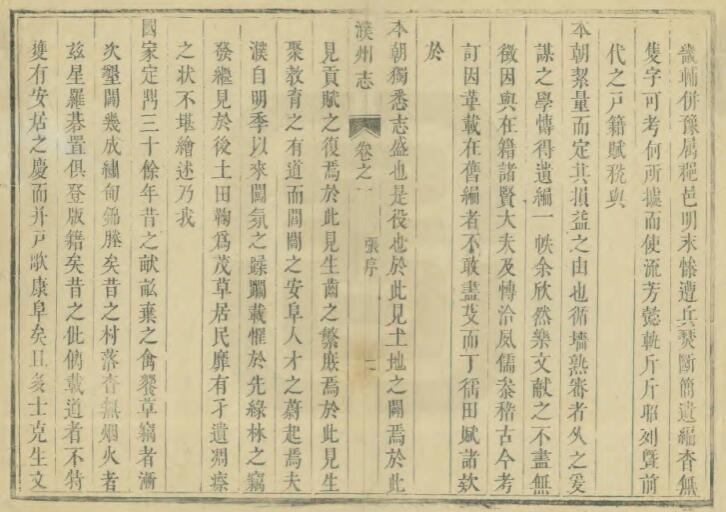 畿輔併豫属耙邑明末慘遭兵燹斷簡遺編杳無
隻字可考何所據而使流芳懿軌斤斤昭列暨前
代之戸籍賦稅與
本朝絜量而定其損益之由也循墻熟審者久之爰
謀之學博得遺編一帙余欣然樂文献之不盡無
徵因與在籍諸賢大夫及博洽夙儒叅稽古今考
訂因革載在舊編者不敢盡芟而丁徭田賦諸欵
於
本朝獨悉志盛也是役也於此見土地之闢焉於此
濮州志 卷之一 張序 二
見貢賦之復焉於此見生齒之繁庶焉於此見生
聚敎育之有道而閭閻之安阜人才之蔚起焉夫
濮自明季以來闖氛之蹂躪載罹於先綠林之竊
發繼見於後土田鞠爲茂草居民靡有孑遺凋瘵
之狀不堪繪述乃我
國家定鼎三十餘年昔之献畝棄之禽獸草竊者漸
次墾闢幾成繡甸錦塍矣昔之村落杳無烟火者
玆星羅碁置俱登版籍矣昔之仳傂載道者不特
獲有安居之慶而并戸歌康阜矣且多士克生文